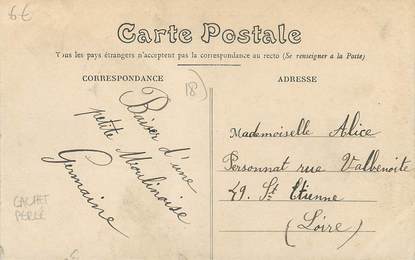 6€
Carte Postale
Tous les pays étrangers n'acceptent pas la correspondance au recto (Se renseigner à la Poste)
CORRESPONDANCE
ADRESSE
18
Baiser d'une
petite Moulinoise
Germaine
CACHET
PERLÉ
Mademoiselle Alice
Personnat rue Valbenoite
49. St Etienne
(Loire)